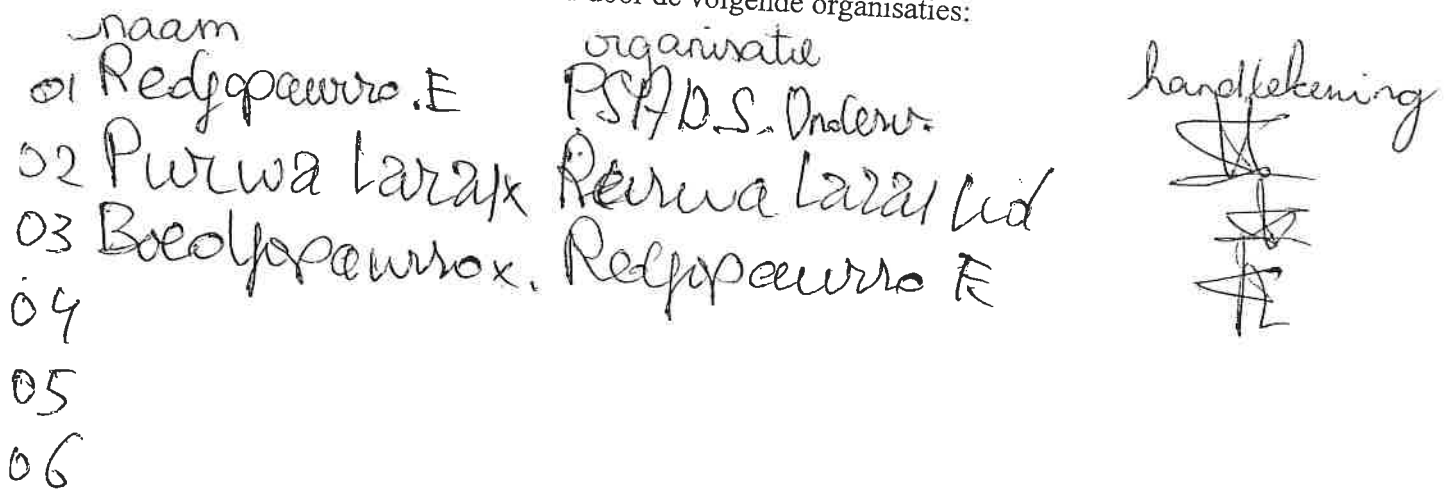 door de volgende organisaties:
naam organisatie handtekening
01 Redjopawiro.E PSADS. Onderv.
02 Purwa Laras x Purwa Laras lid
03 Boedjopawiro x. Redjopawiro E
04
05
06